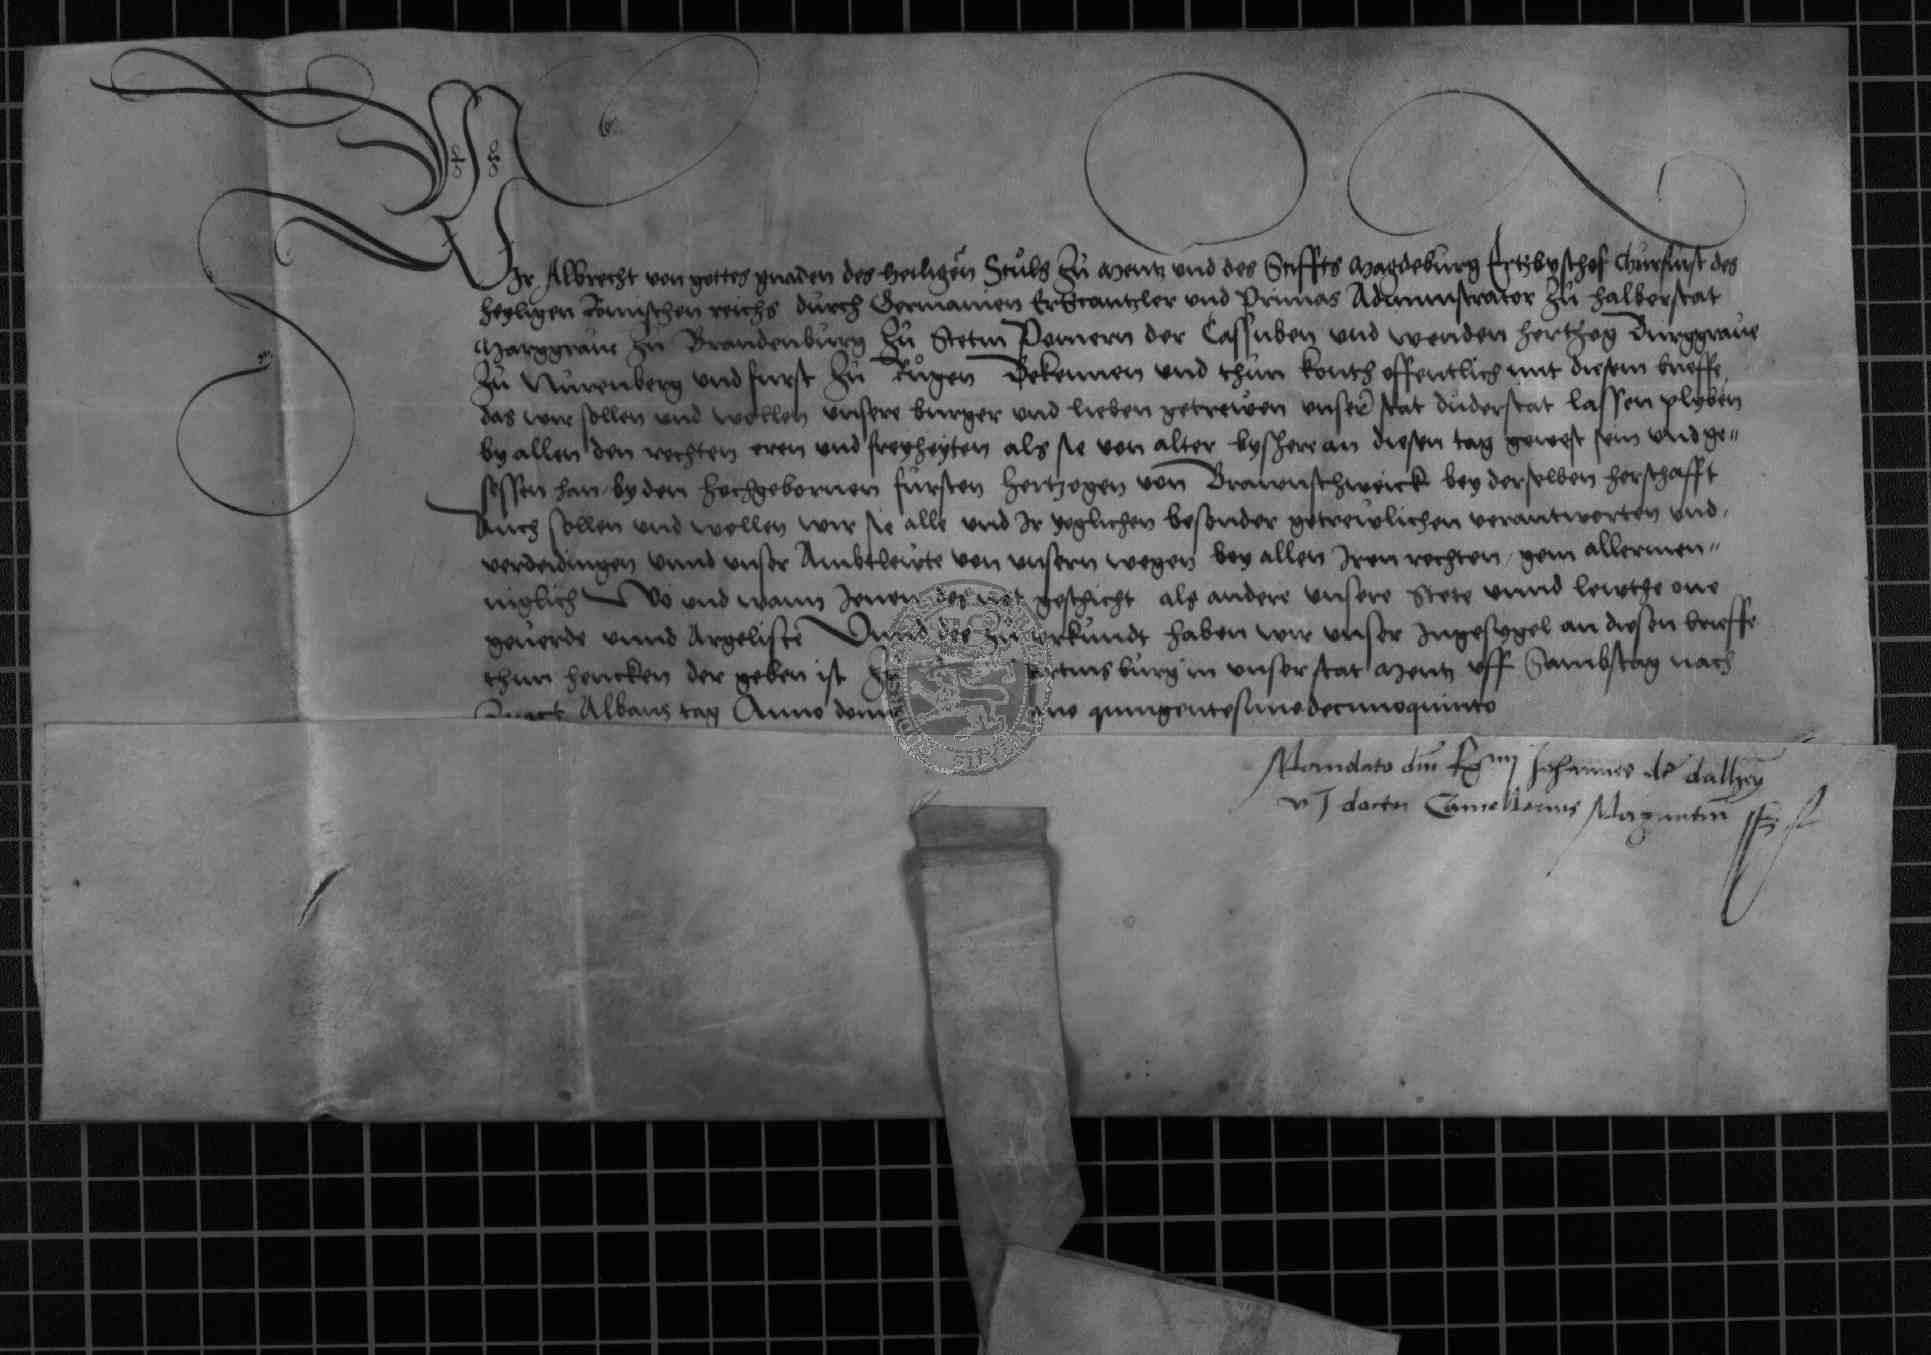 Wir Albrecht von gottes gnaden des heiligen Stuls zu Mentz und des Stiffts Magdeburg Ertzbyschof Churfurst des
heyligen Romischen reichs durch Germanien Ertzcantzler und Primas Administrator zu Halberstat
Marggraue zu Brandenburg zu Stetin Pomern der Cassuben und wenden hertzog Burggraue
zu Nurenberg und furst zu Rugen Bekennen und thun konth offentlich mit diesem brieffe
das wir sollen und wollen unsere burger und lieben getrewen unser stat duderstat lassen plyben
by allen den rechten eren und freyheyten als sie von alter byshere an diesen tag gewest sein und ge"
sessen han by den hochgebornen fursten hertzogen von Brawnschweick bey derselben herschafft
Auch sollen und wollen wir sie alle und Ir yglichen besonder getrewlichen verantworten und
verdeidingen unnd unser Ambtleute von unsern wegen bey allen Iren rechten gein allermen"
niglich Wo und wann Jenen des not geschicht als andere unsere Stete unnd lewthe one
geuerde unnd Argeliste Unnd des zu urkundt haben wir unser Ingesygel an diesen brieffe
thun hencken der geben ist burg in unser stat Mentz uff Sambstag nach
Albans tag Anno quingentesimodecimoquinto
Mandato dni Johannes de dalheÿ
v J doctor Cancellarius Maguntin